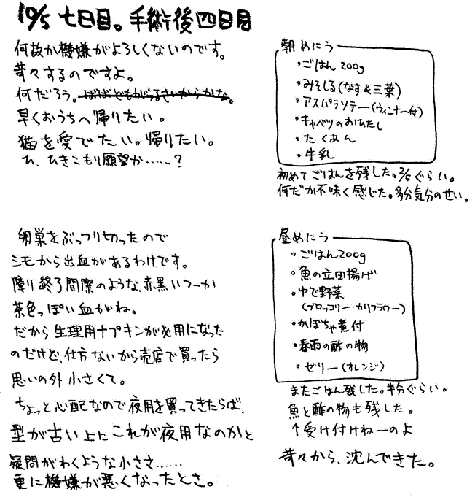 10/5 七日目。手術後四日目
何故か機嫌がよろしくないのです。
苛々するのですよ。
何だろう。
早くおうちへ帰りたい。
猫を愛でたい。帰りたい。
あ、ひきこもり願望か……?
朝めにう
・ごはん200g
・みそしる(なす&三菜)
・アスパラソテー(ウィンナー有)
・キャベツのおひたし
・たくあん
・牛乳
初めてごはんを残した。
何だか不味く感じた。多分気分のせい。
卵巣をぶっつり切ったので
シモから出血があるわけです。
障り終了間際のような、赤黒いつーか
茶色っぽい血がね。
だから生理用ナプキンが必用になった
のだけど、仕方ないから売店で買ったら
思いの外小さくて。
ちょっと心配なので夜用を買ってきたらば、
型が古い上にこれが夜用なのかと
疑問がわくような小ささ……
更に機嫌が悪くなったとさ。
昼めにう
・ごはん200g
・魚の立田揚げ
・ゆで野菜
(ブロッコリー・カリフラワー)
・かぼちゃ煮付
・春雨の酢の物
・ゼリー(オレンジ)
またごはん残した。半分ぐらい。
魚と酢の物も残した。
↑受け付けねーのよ
苛々から、沈んできた。